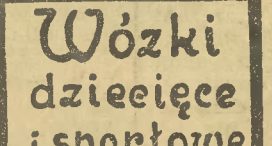 Wózki
dziecięce
i sportowe